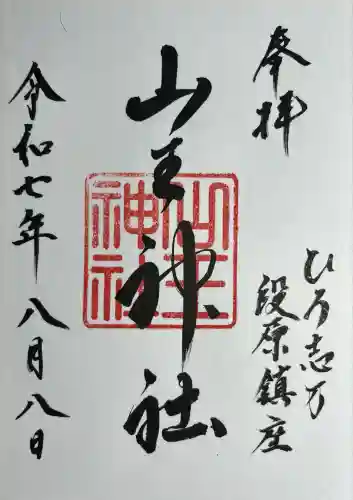 奉拝
ひろ志万
段原鎮座
山王神社
山王
神社
令和七年八月八日